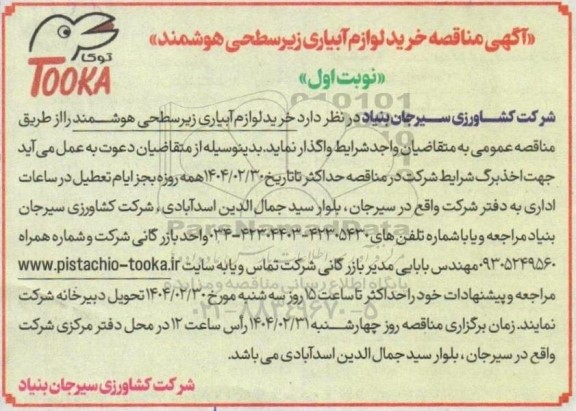 «آگهی مناقصه خرید لوازم آبیاری زیرسطحی هوشمند»
توکا
TOOKA
«نوبت اول»
شرکت کشاورزی سیرجان بنیاد در نظر دارد خرید لوازم آبیاری زیرسطحی هوشمند را از طریق
مناقصه عمومی به متقاضیان واجد شرایط واگذار نماید. بدینوسیله از متقاضیان دعوت به عمل می آید
جهت اخذ برگ شرایط شرکت در مناقصه حداکثر تا تاریخ ۱۴۰۴/۰۲/۳۰ همه روزه بجز ایام تعطیل در ساعات
اداری به دفتر شرکت واقع در سیرجان ، بلوار سید جمال الدین اسدآبادی ، شرکت کشاورزی سیرجان
بنیاد مراجعه و یا با شماره تلفن های ۴۲۳۰۵۴۳۰-۴۲۳۰۴۴۰۳-۰۳۴ واحد بازرگانی شرکت و شماره همراه
۰۹۳۰۵۲۴۹۵۶۰ مهندس بابایی مدیر بازرگانی شرکت تماس و یا به سایت www.pistachio-tooka.ir
مراجعه و پیشنهادات خود را حداکثر تا ساعت ۱۵ روز سه شنبه مورخ ۱۴۰۴/۰۲/۳۰ تحویل دبیرخانه شرکت
نمایند. زمان برگزاری مناقصه روز چهارشنبه ۱۴۰۴/۰۲/۳۱ رأس ساعت ۱۲ در محل دفتر مرکزی شرکت
واقع در سیرجان ، بلوار سید جمال الدین اسدآبادی می باشد.
شرکت کشاورزی سیرجان بنیاد
پایگاه اطلاع رسانی مناقصه و مزایده
۰۲۱-۸۸۳۴۹۶۷۰-۵